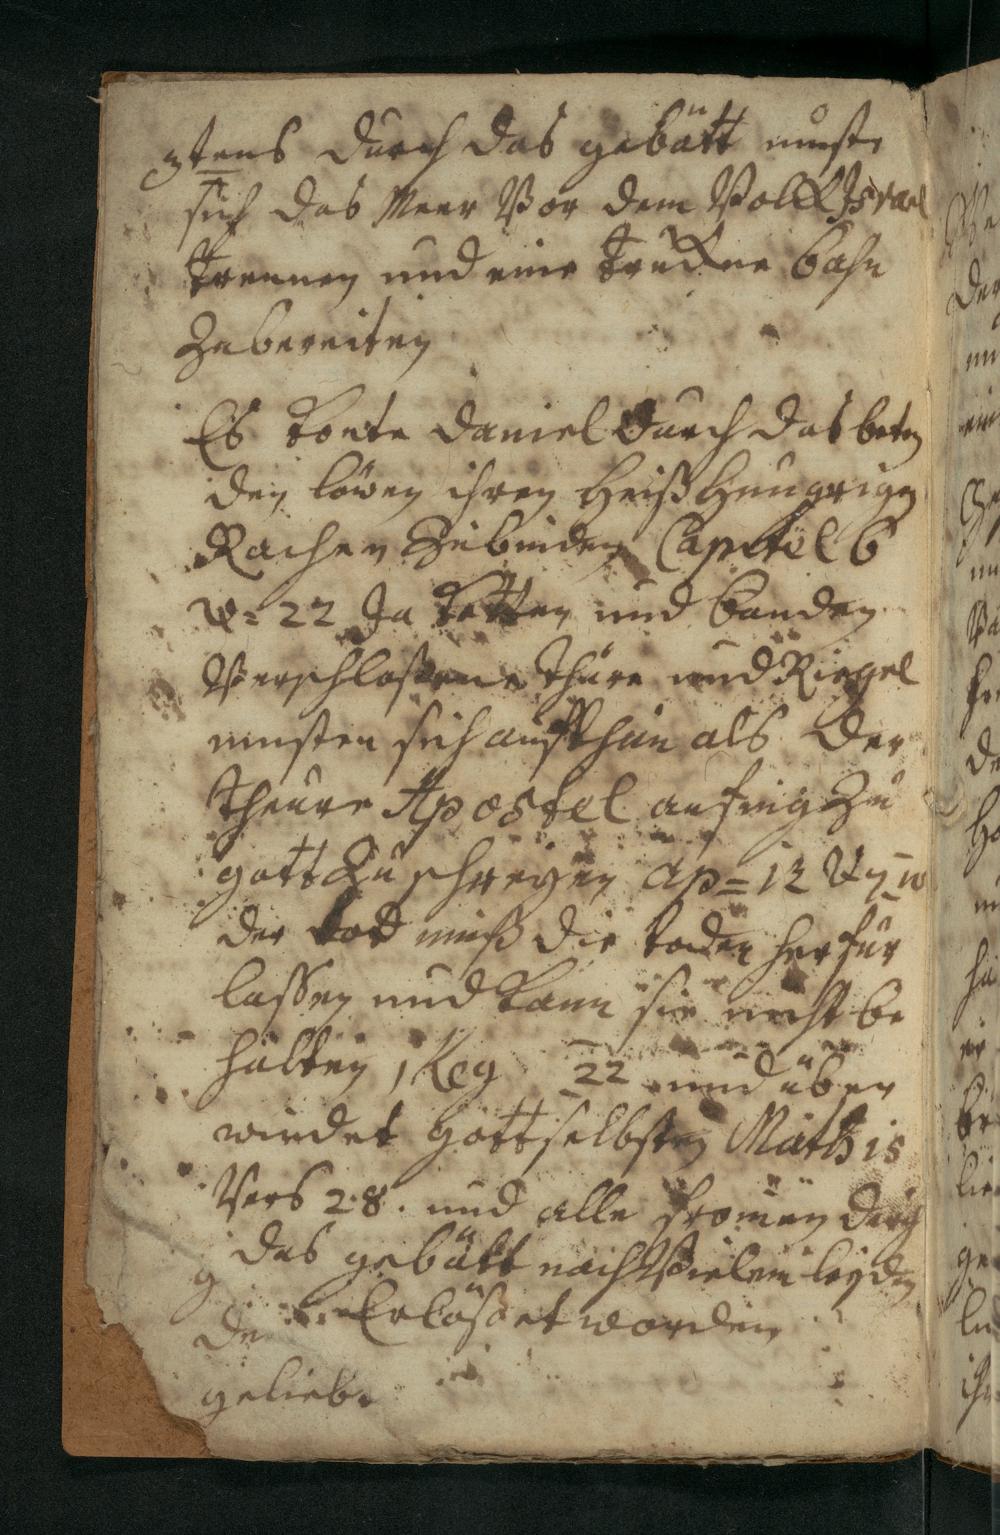 3tens durch das gebätt muste
sich das Meer Vor dem Volck Israel
Trennen und eine truckne bahn
Zubereiten
Es konte Daniel durch das beten
den löwen ihren heißhungrigen
Rachen Zubinden Capitel 6
v= 22 Ja ketten und banden
Verschlossene thüre und Riegel
musten sich aufthun als der
theure Apostel anfing zu
gott zu schreyen ap= 12 V 7 10
der tod muß die toden herfür
lassen und kann sie nicht be
halten 1 Reg 22 und über
windet gott selbsten Math 15
Vers 28. und alle fromen durch
das gebätt nach Vielem leyden
Erlösset worden
gelieb